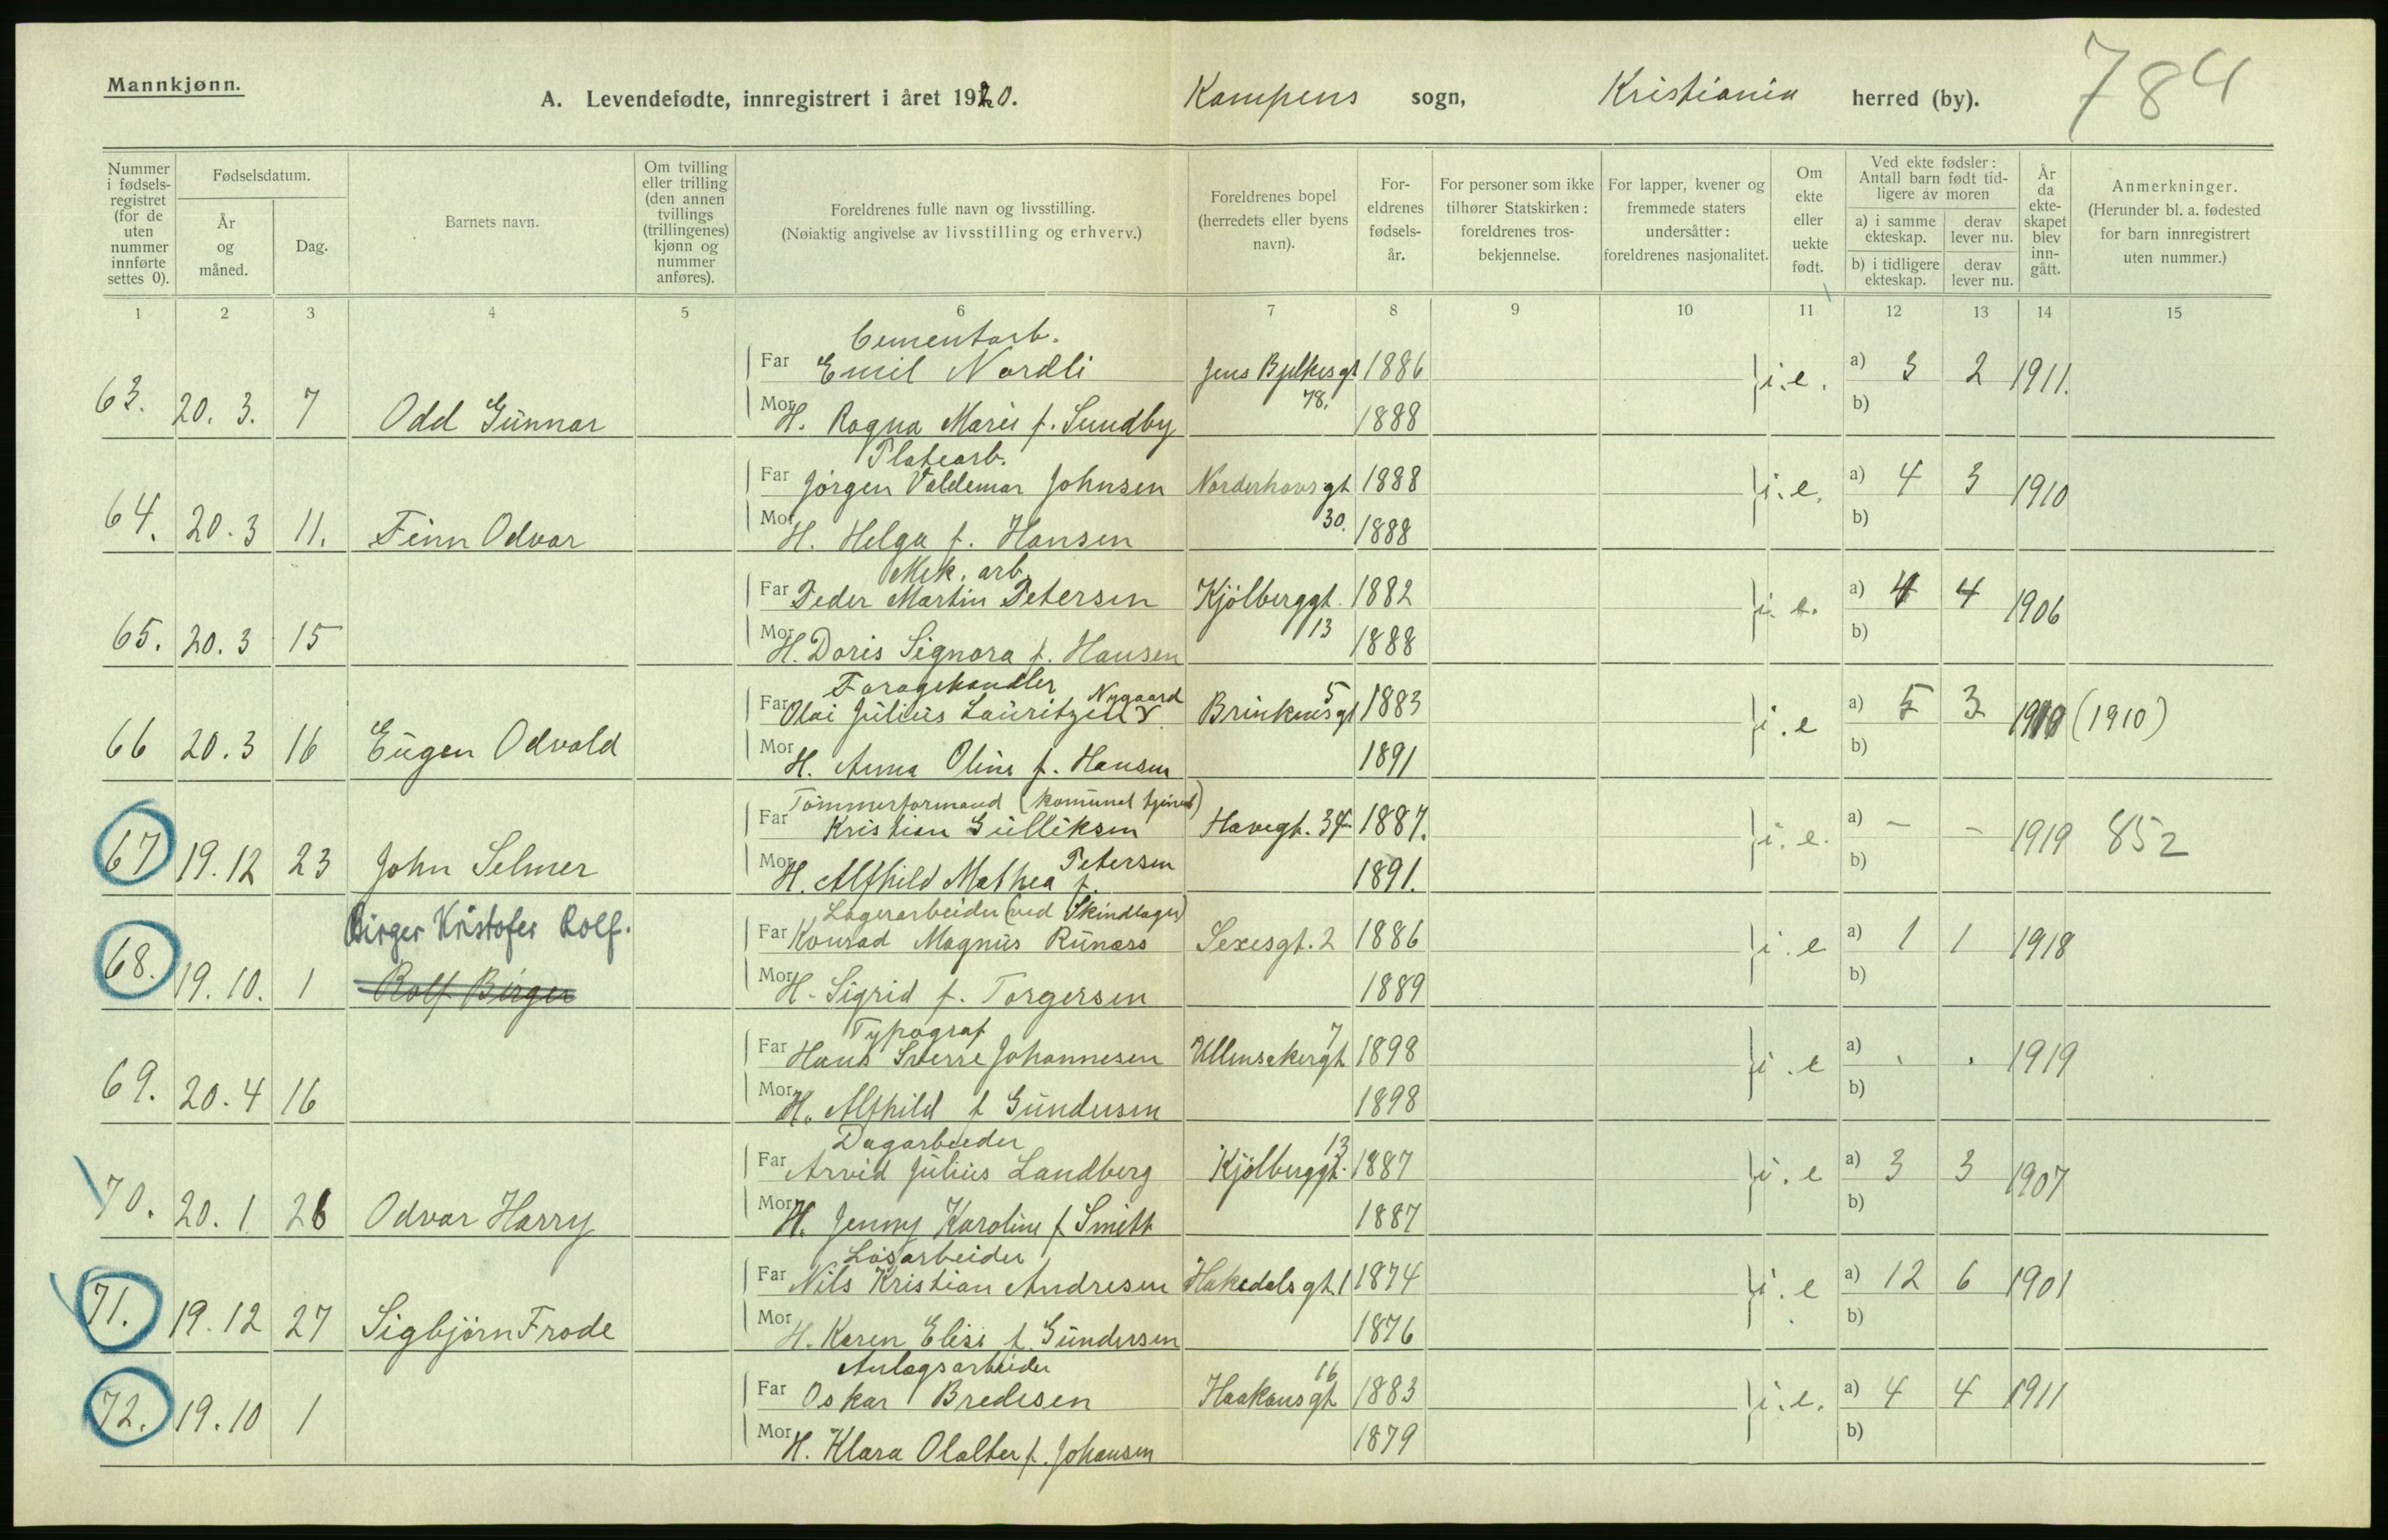 Mannkjønn.
A. Levendefødte, innregistrert i året 1920. Kampens sogn, Kristiania herred (by). 784
Nummer i fødsels-registret (for de uten nummer innførte settes 0). Fødselsdatum. År og måned. Dag. Barnets navn. Om tvilling eller trilling (den annen tvillings (trillingenes) kjønn og nummer anføres). Foreldrenes fulle navn og livsstilling. (Nøiaktig angivelse av livsstilling og erhverv.) Foreldrenes bopel (herredets eller byens navn). For-eldrenes fødsels-år. For personer som ikke tilhører Statskirken: foreldrenes tros-bekjennelse. For lapper, kvener og fremmede staters undersåtter: foreldrenes nasjonalitet. Om ekte eller uekte født. Ved ekte fødsler: Antall barn født tid-ligere av moren a) i samme ekteskap. derav lever nu. b) i tidligere ekteskap. derav lever nu. År da ekte-skapet blev inn-gått. Anmerkninger. (Herunder bl. a. fødested for barn innregistrert uten nummer.)
1 2 3 4 5 6 7 8 9 10 11 12 13 14 15
Cementarb.
Far Emil Nordli Jens Bjelkesgt 78. 1886 i. e. a) 3 2 1911.
63. 20. 3. 7 Odd Gunnar Mor H. Ragna Marie f. Sundby 1888 b)
Platearb.
Far Jörgen Valdemar Johnsen Norderhovsgt 30. 1888 i. e. a) 4 3 1910
64. 20. 3 11. Finn Odvar Mor H. Helga f. Hansen 1888 b)
Mek. arb.
Far Peder Martin Petersen Kjölberggt. 13 1882 i. e. a) 4 4 1906
65. 20. 3 15 Mor H. Doris Signora f. Hansen 1888 b)
Foragehandler
Far Olai Julius Lauritzen Nygaard Brinkensgt 5 1883 i. e a) 5 3 1910 (1910)
66 20. 3 16 Eugen Odvald Mor H. Anna Oline f. Hansen 1891 b)
Tömmerformand (komunal
Far Kristian Gulliksen Havegt. 34 1887. i. e. a) - - 1919 852
67 19. 12 23 John Selmer Mor H. Alfhild Mathea f. Petersen 1891. b)
Lagerarbeider (ved Skindlager)
Birger Kristofer Rolf. Far Konrad Magnus Runæss Sexesgt. 2 1886 i. e a) 1 1 1918
68. 19. 10. 1 Rolf Birger Mor H. Sigrid f. Torgersen 1889 b)
Typograf
Far Hans Sverre Johannesen Ullensakergt 7 1898 i. e a) . . 1919
69. 20. 4 16 Mor H. Alfhild f Gundersen 1898 b)
Dagarbeider
Far Arvid Julius Landberg Kjölberggt. 13 1887 i. e a) 3 3 1907
70. 20. 1 26 Odvar Harry Mor H. Jenny Karoline f Smith 1887 b)
Løsarbeider
Far Nils Kristian Andresen Hakedalsgt. 1 1874 i. e a) 12 6 1901
71. 19. 12 27 Sigbjörn Frode Mor H. Karen Elise f. Gundersen 1876 b)
Anlagsarbeider
Far Oskar Bredesen Haakonsgt 16 1883 i. e. a) 4 4 1911
72. 19. 10 1 Mor H. Klara f. Johansen 1879 b)